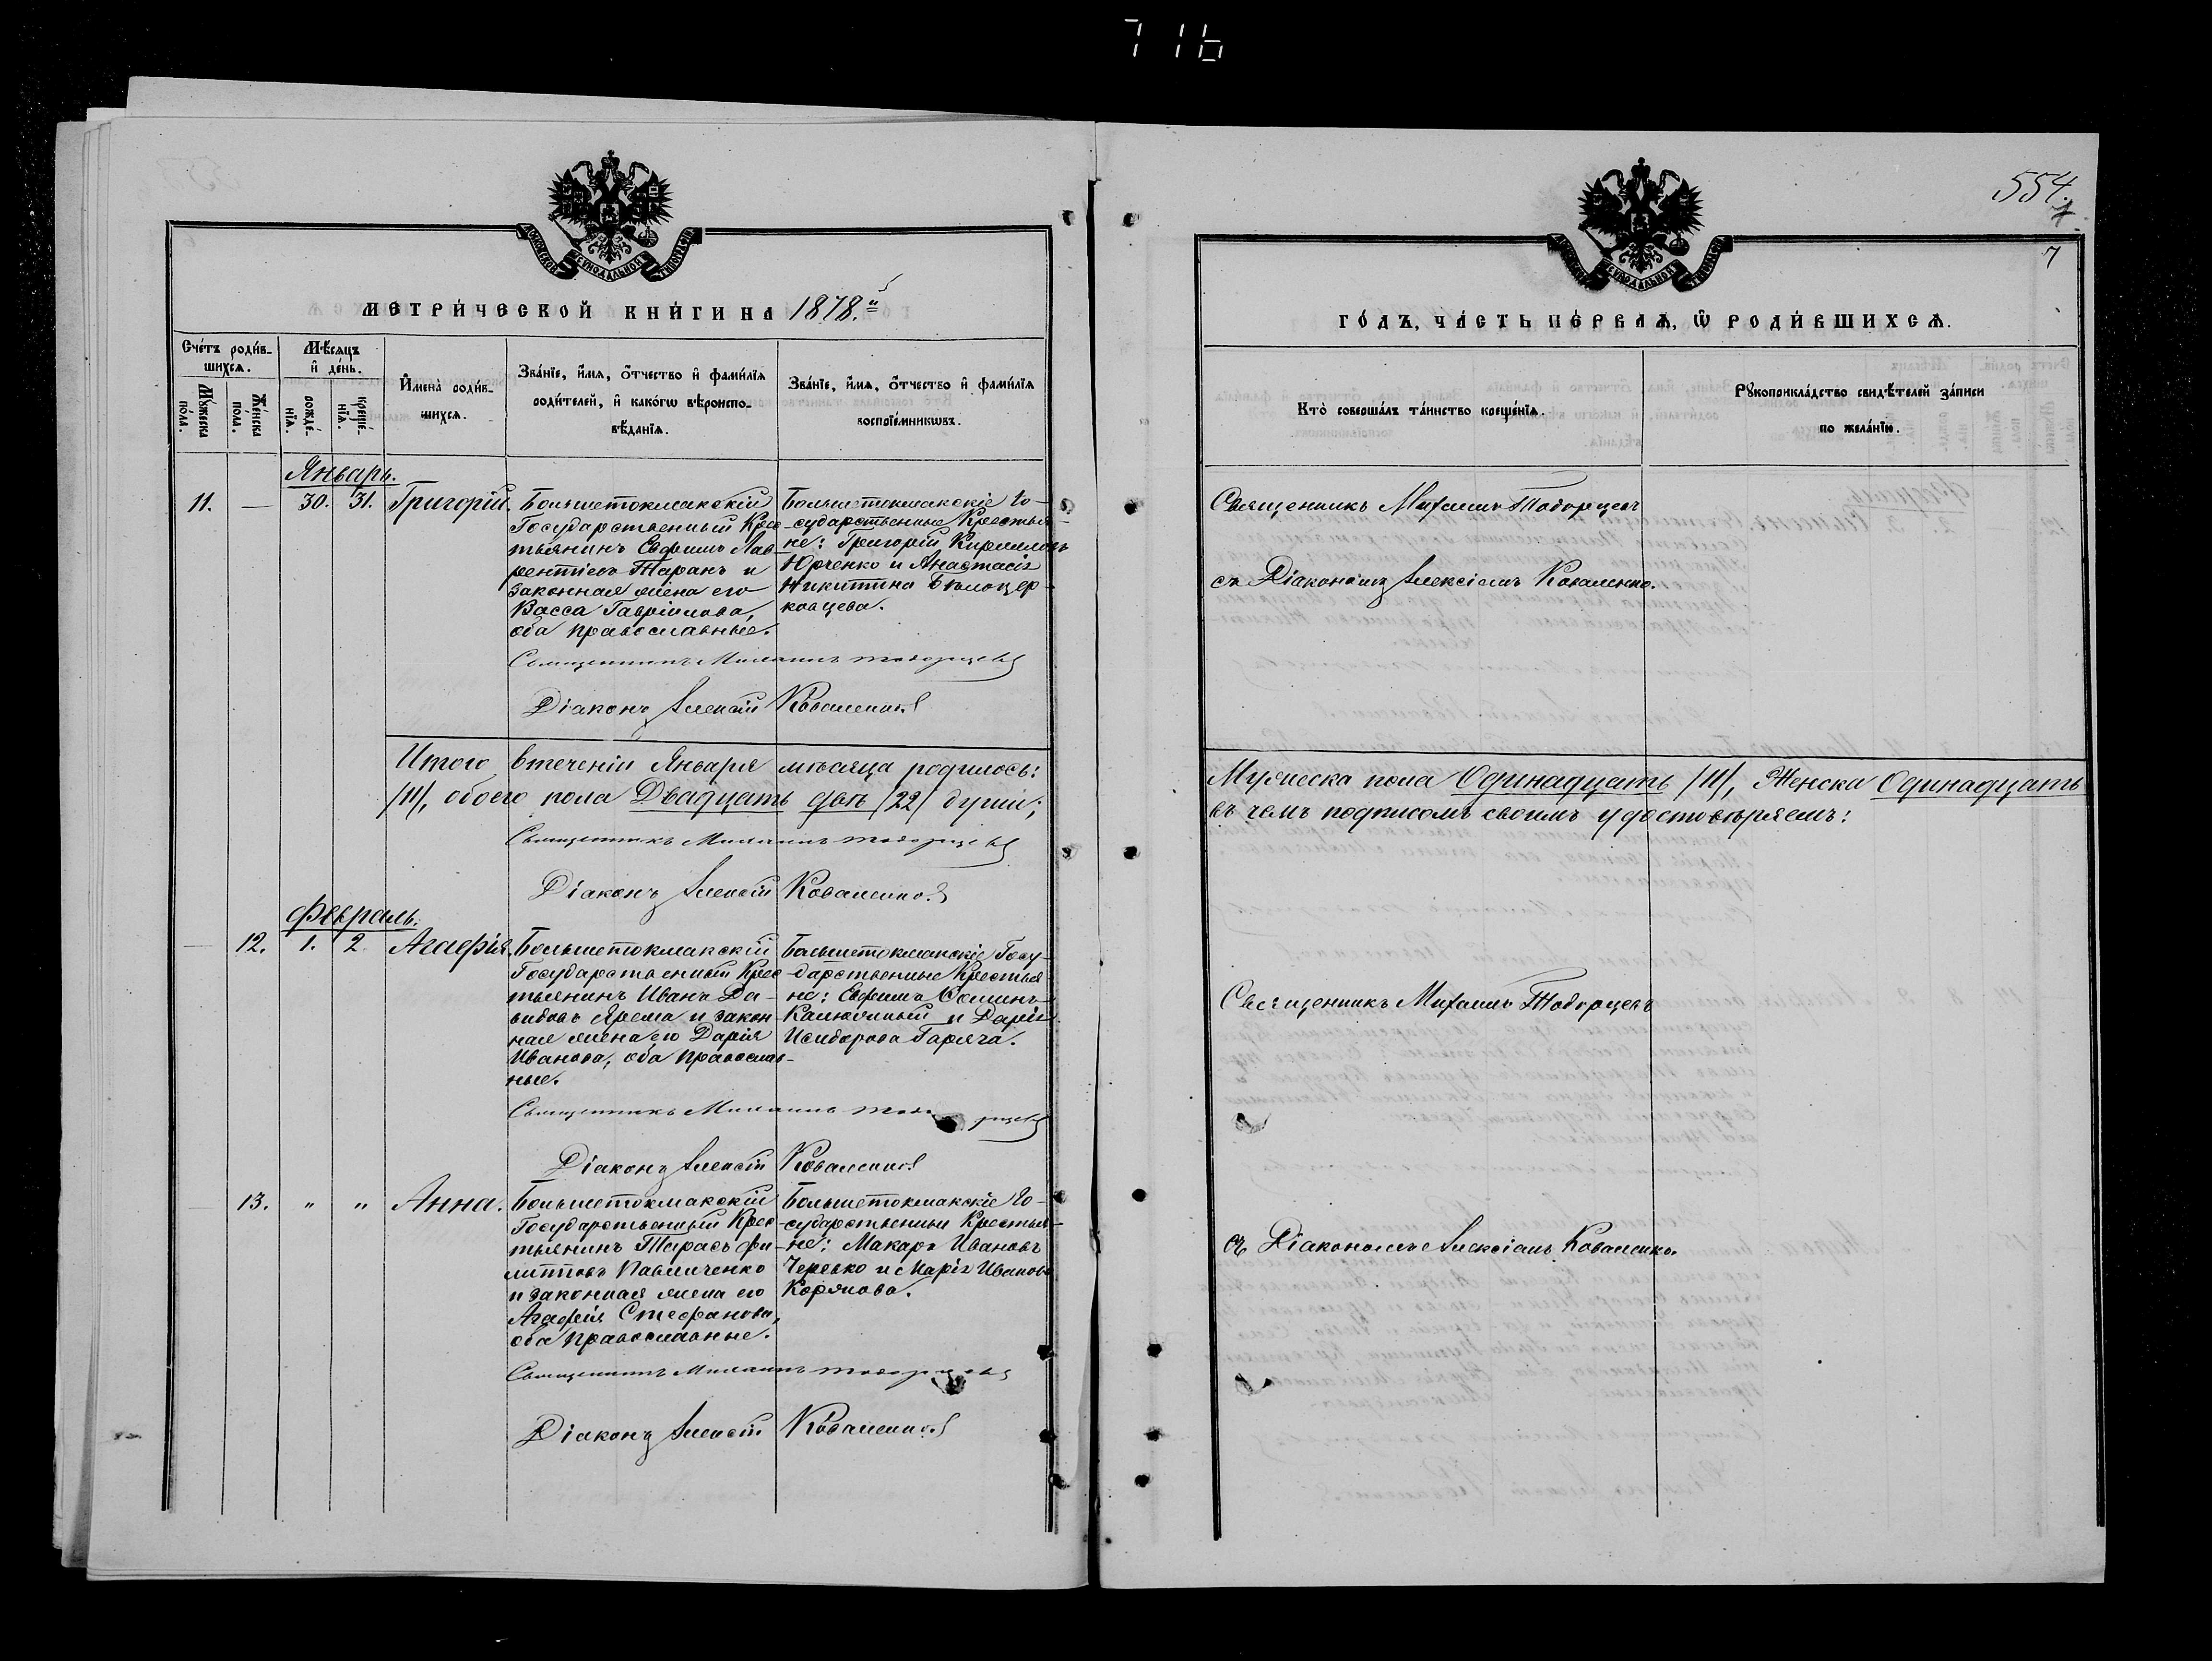 716
МОСКОВСКОЙ СѴНОДАЛЬНОЙ ТИПОГРАФІИ
МЕТРИ́ЧЕСКОЙ КНИ́ГИ НА 1878.й
Сче́тъ роди́в-
шихсѧ.
Мꙋ́жеска
по́ла.
Же́нска
по́ла.
Мѣ́сѧцъ
и҆ де́нь.
рожде́-
нїѧ.
креще́-
нїѧ.
И҆мена̀ роди́в-
шихсѧ.
Зва́нїе, и҆́мѧ, ѻ҆́тчество и҆ фами́лїѧ
роди́телей, и҆ како́гѡ вѣроиспо-
вѣ́данїѧ.
Зва́нїе, и҆́мѧ, ѻ҆́тчество и҆ фами́лїѧ
воспрїе́мникѡвъ.
Январь.
11. — 30. 31. Григорій.
Большетокмакскій
Государственный Крес-
тьянинъ Евфимъ Лав-
рентіевъ Таранъ и
законная жена его
Васса Гавріилова,
оба православные.
Большетокмакскіе Го-
сударственные Крестья-
не: Григорій Кирилловъ
Юрченко и Анастасія
Никитина Бѣлоцер-
ковцева.
Священникъ Михаилъ Тодорцевъ
Діаконъ Алексій Коваленко
Итого втеченіи Января мѣсяца родилось:
/11/, обоего пола Двадцать двѣ /22/ души;
Священникъ Михаилъ Тодорцевъ
Діаконъ Алексій Коваленко
Февраль.
— 12. 1. 2. Агафія.
Большетокмакскій
Государственный Крес-
тьянинъ Иванъ Да-
видовъ Ярема и закон-
ная жена его Дарія
Иванова, оба православ-
ные.
Большетокмакскіе Госу-
дарственные Крестья-
не: Евфимъ
и Дарія
Исидорова Гаряча.
Священникъ Михаилъ Тодорцевъ
Діаконъ Алексій Коваленко
— 13. " " Анна.
Большетокмакскій
Государственный Крес-
тьянинъ Тарасъ Фи-
липповъ Павличенко
и законная жена его
Агафія Стефанова,
оба православные.
Большетокмакскіе Го-
сударственныи Крестья-
не: Макаръ Ивановъ
Черевко и Марія Иванова
Коржова.
Священникъ Михаилъ Тодорцевъ
Діаконъ Алексій Коваленко
554.
7
МОСКОВСКОЙ СѴНОДАЛЬНОЙ ТИПОГРАФІИ
ГО́ДЪ, ЧА́СТЬ ПЕ́РВАѦ, Ѡ҆ РОДИ́ВШИХСѦ.
Кто̀ соверша́лъ та́инство креще́нїѧ.
Рꙋкоприкла́дство свидѣ́телей за́писи
по жела́нїю.
Священникъ Михаилъ Тодорцевъ
съ Діакономъ Алексіемъ Коваленко.
Мужеска пола Одинадцать /11/, Женска Одинадцать
въ чемъ подписомъ своимъ удостовѣряемъ:
Священникъ Михаилъ Тодорцевъ
съ Діакономъ Алексіемъ Коваленко.